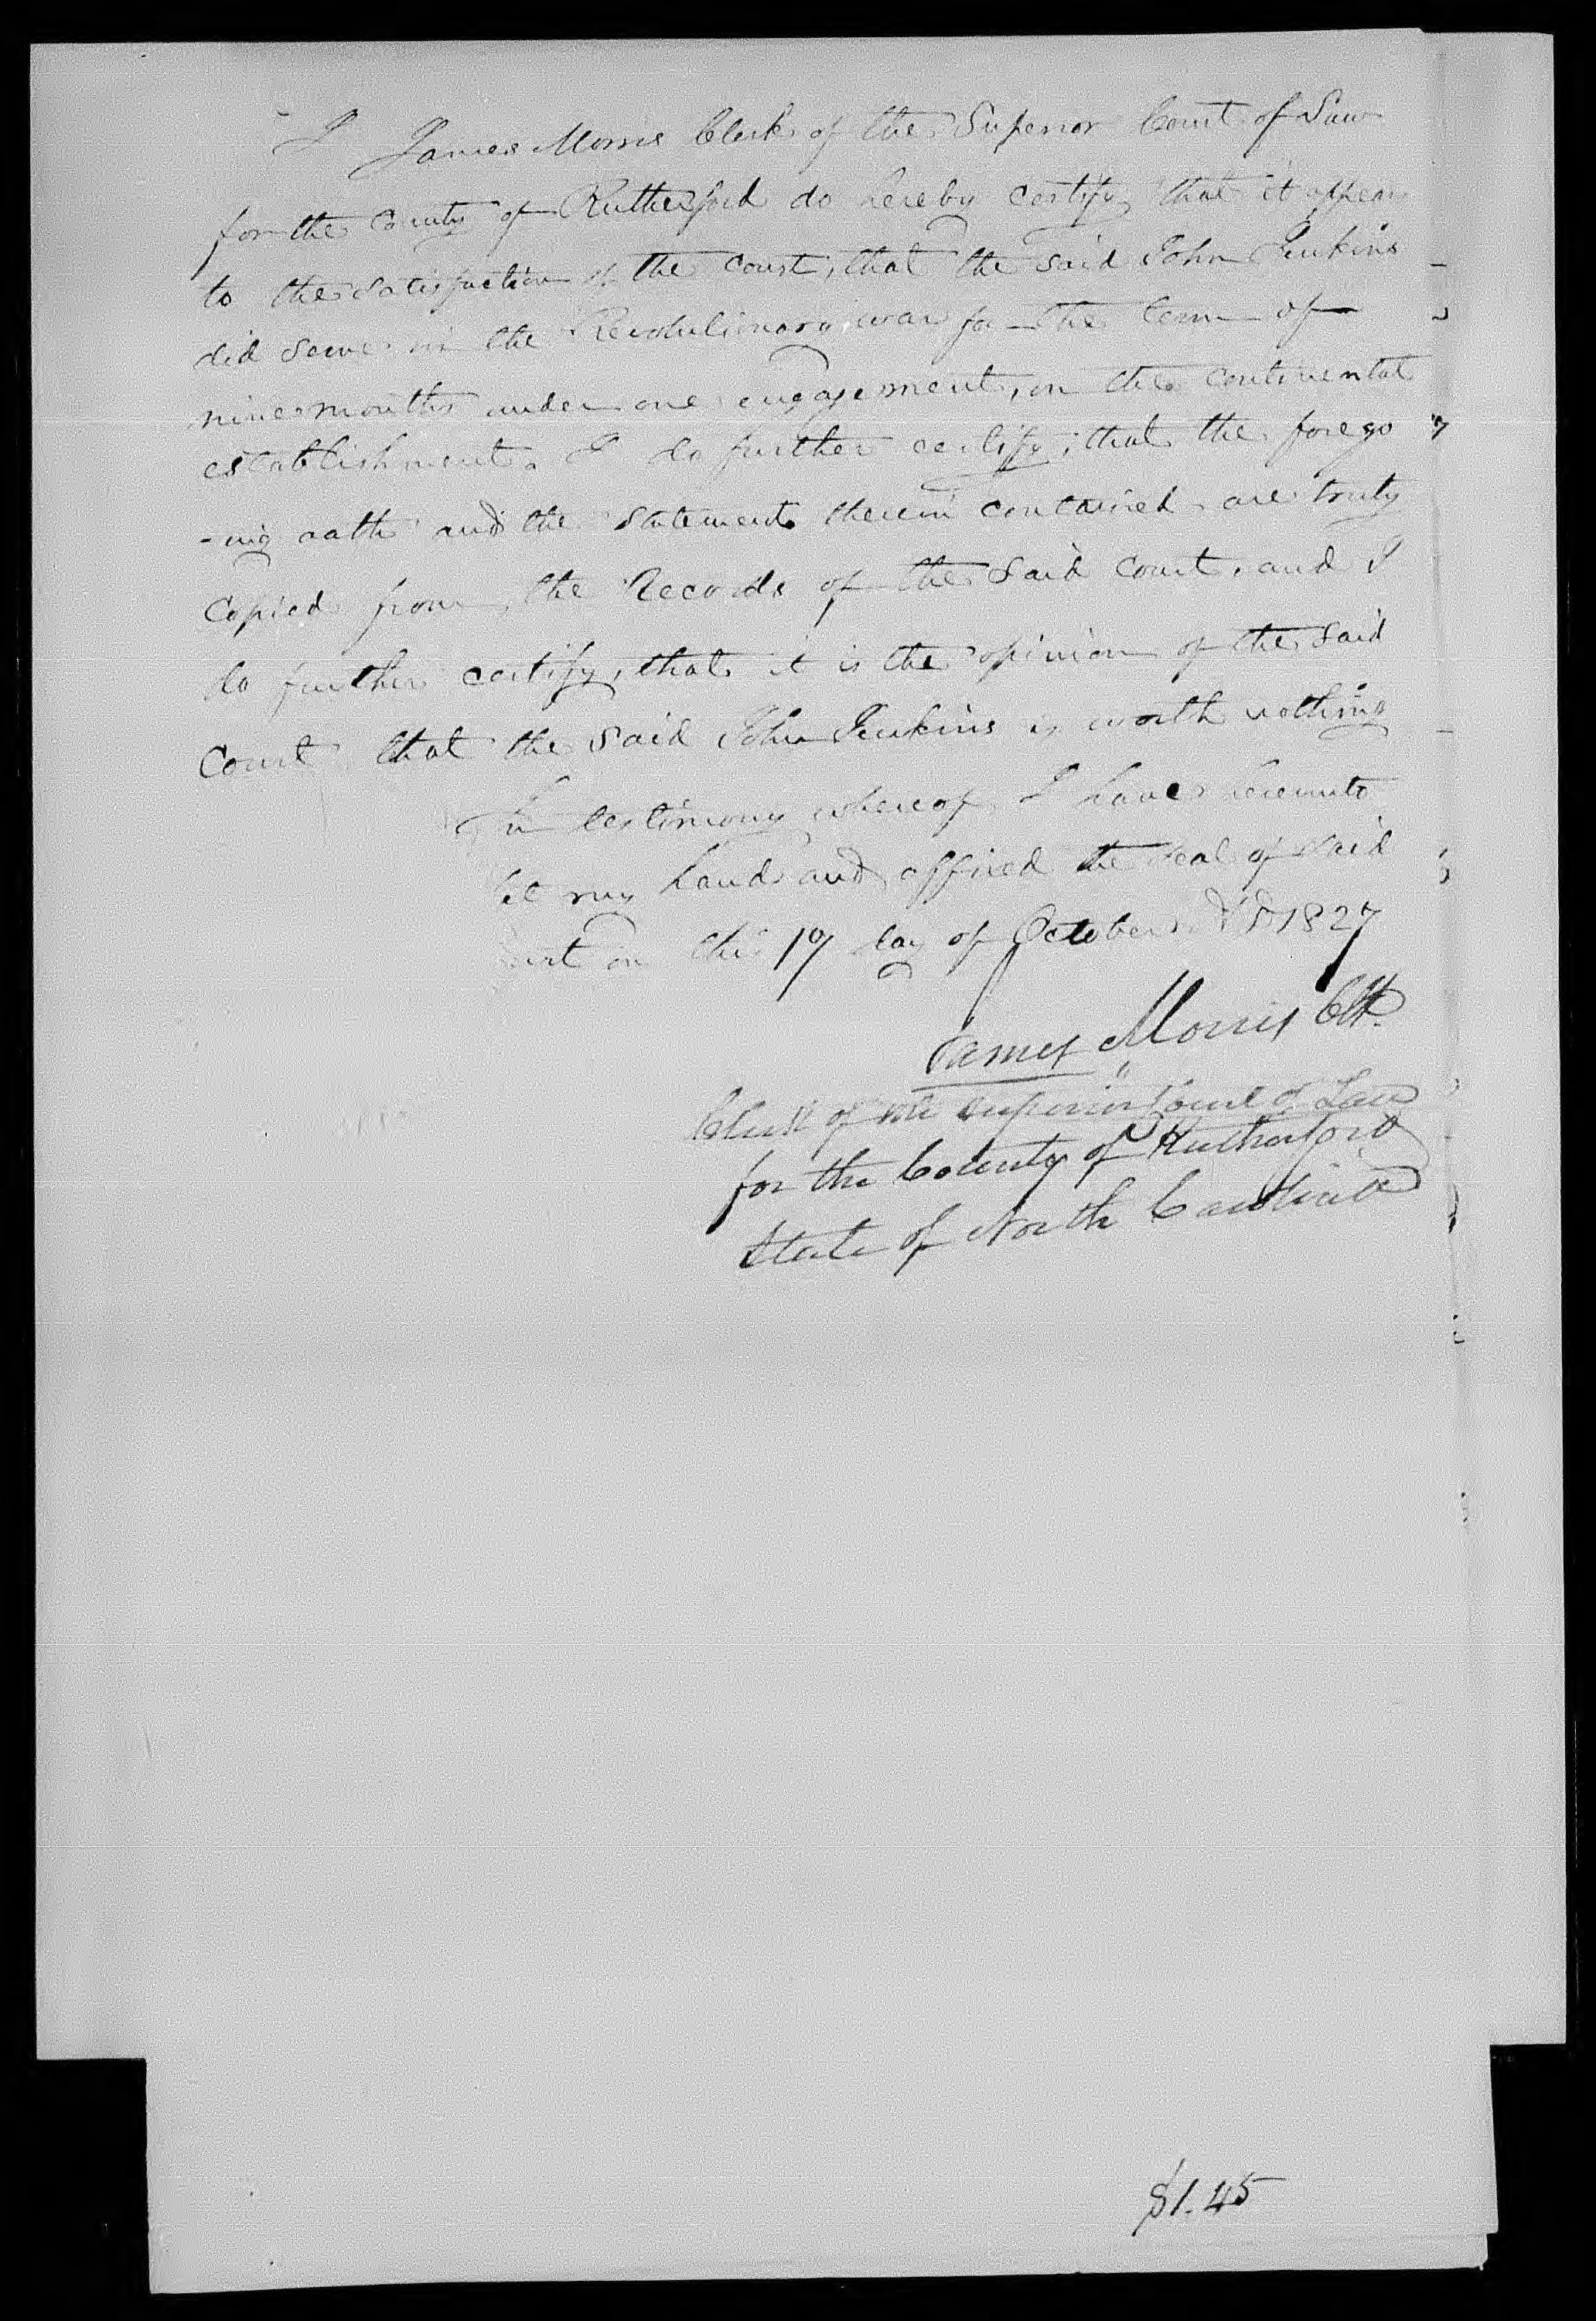 I James Morris Clerk of the Superior Court of Law
for the County of Rutherford do hereby certify that it appears
to the satisfaction of the court, that the said John Jenkins
did serve in the Revolutionary war for the term of
nine months under one engagement, on the continental
establishment. I do further certify, that the forego
-ing oath and the statements therein contained are truly
Copied from the Records of the said Court, and I
do further certify, that it is the opinion of the said
Court that the said John Jenkins is worth nothing
In testimony whereof I have hereunto
set my hand and affixed the seal of said
Court on this 19 day of October AD 1827
James Morris Clk.
Clerk of the superior Court of Law
for the County of Rutherford
State of North Carolina
$1.45